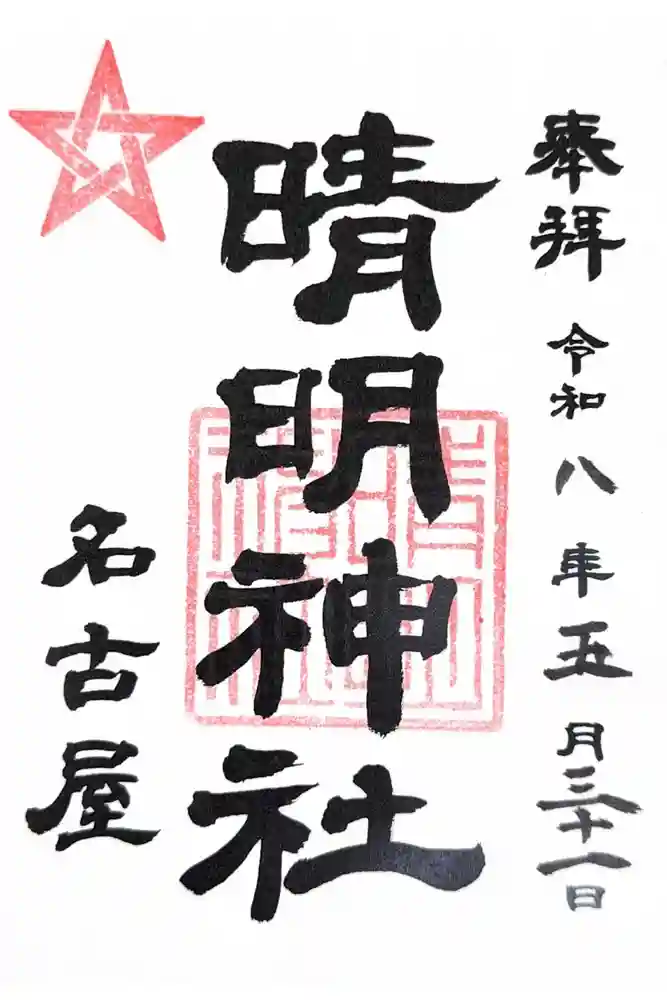 奉拝 令和八年五月三十一日
晴明神社
名古屋